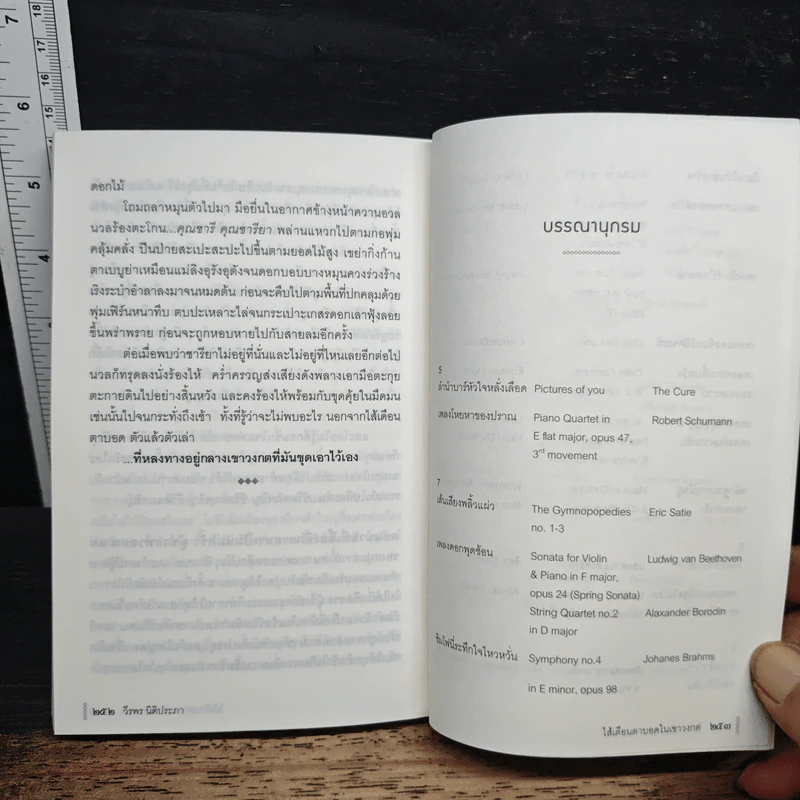 ดอกไม้
โถมถลาหมุนตัวไปมา มือยื่นในอากาศข้างหน้าควานอวล
นวลร้องตะโกน...คุณชารี คุณชารียา พล่านแหวกไปตามกอพุ่ม
คลุ้มคลั่ง ปีนป่ายสะเปะสะปะไปขึ้นตามยอดไม้สูง เขย่ากิ่งก้าน
ตาเบบูย่าเหมือนแม่ลิงอุรังอุตังจนดอกบอบบางหมุนควงร่วงร้าง
เริงระบำอำลาลงมาจนหมดต้น ก่อนจะคืบไปตามพื้นที่ปกคลุมด้วย
พุ่มเฟิร์นหนาทึบ ตบปะเหลาะไล่จนกระเปาะเกสรดอกเลาฟุ้งลอย
ขึ้นพร่าพราย ก่อนจะถูกหอบหายไปกับสายลมอีกครั้ง
ต่อเมื่อพบว่าชารียาไม่อยู่ที่นั่นและไม่อยู่ที่ไหนเลยอีกต่อไป
นวลก็ทรุดลงนั่งร้องไห้ คร่ำครวญส่งเสียงดังพลางเอามือตะกุย
ตะกายดินไปอย่างสิ้นหวัง และคงร้องไห้พร้อมกับขุดคุ้ยในมืดมน
เช่นนั้นไปจนกระทั่งถึงเช้า ทั้งที่รู้ว่าจะไม่พบอะไร นอกจากไส้เดือน
ตาบอด ตัวแล้วตัวเล่า
...ที่หลงทางอยู่กลางเขาวงกตที่มันขุดเอาไว้เอง
๒๕๒ วีรพร นิติประภา
บรรณานุกรม
5
ลำนำบาร์หัวใจหลั่งเลือด Pictures of you The Cure
เพลงโหยหาของปราณ Piano Quartet in Robert Schumann
E flat major, opus 47,
3rd movement
7
เส้นเสียงพลิ้วแผ่ว The Gymnopopedies Eric Satie
no. 1-3
เพลงดอกพุดซ้อน Sonata for Violin Ludwig van Beethoven
& Piano in F major,
opus 24 (Spring Sonata)
String Quartet no.2 Alaxander Borodin
in D major
ซิมโฟนีระทึกใจไหวหวั่น Symphony no.4 Johanes Brahms
in E minor, opus 98
ไส้เดือนตาบอดในเขาวงกต ๒๕๓
7
6
5
4
18
17
16
15
14
13
12
11